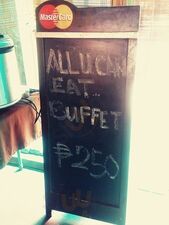 MasterCard
ALL U CAN
EAT...
BUFFET
₱250